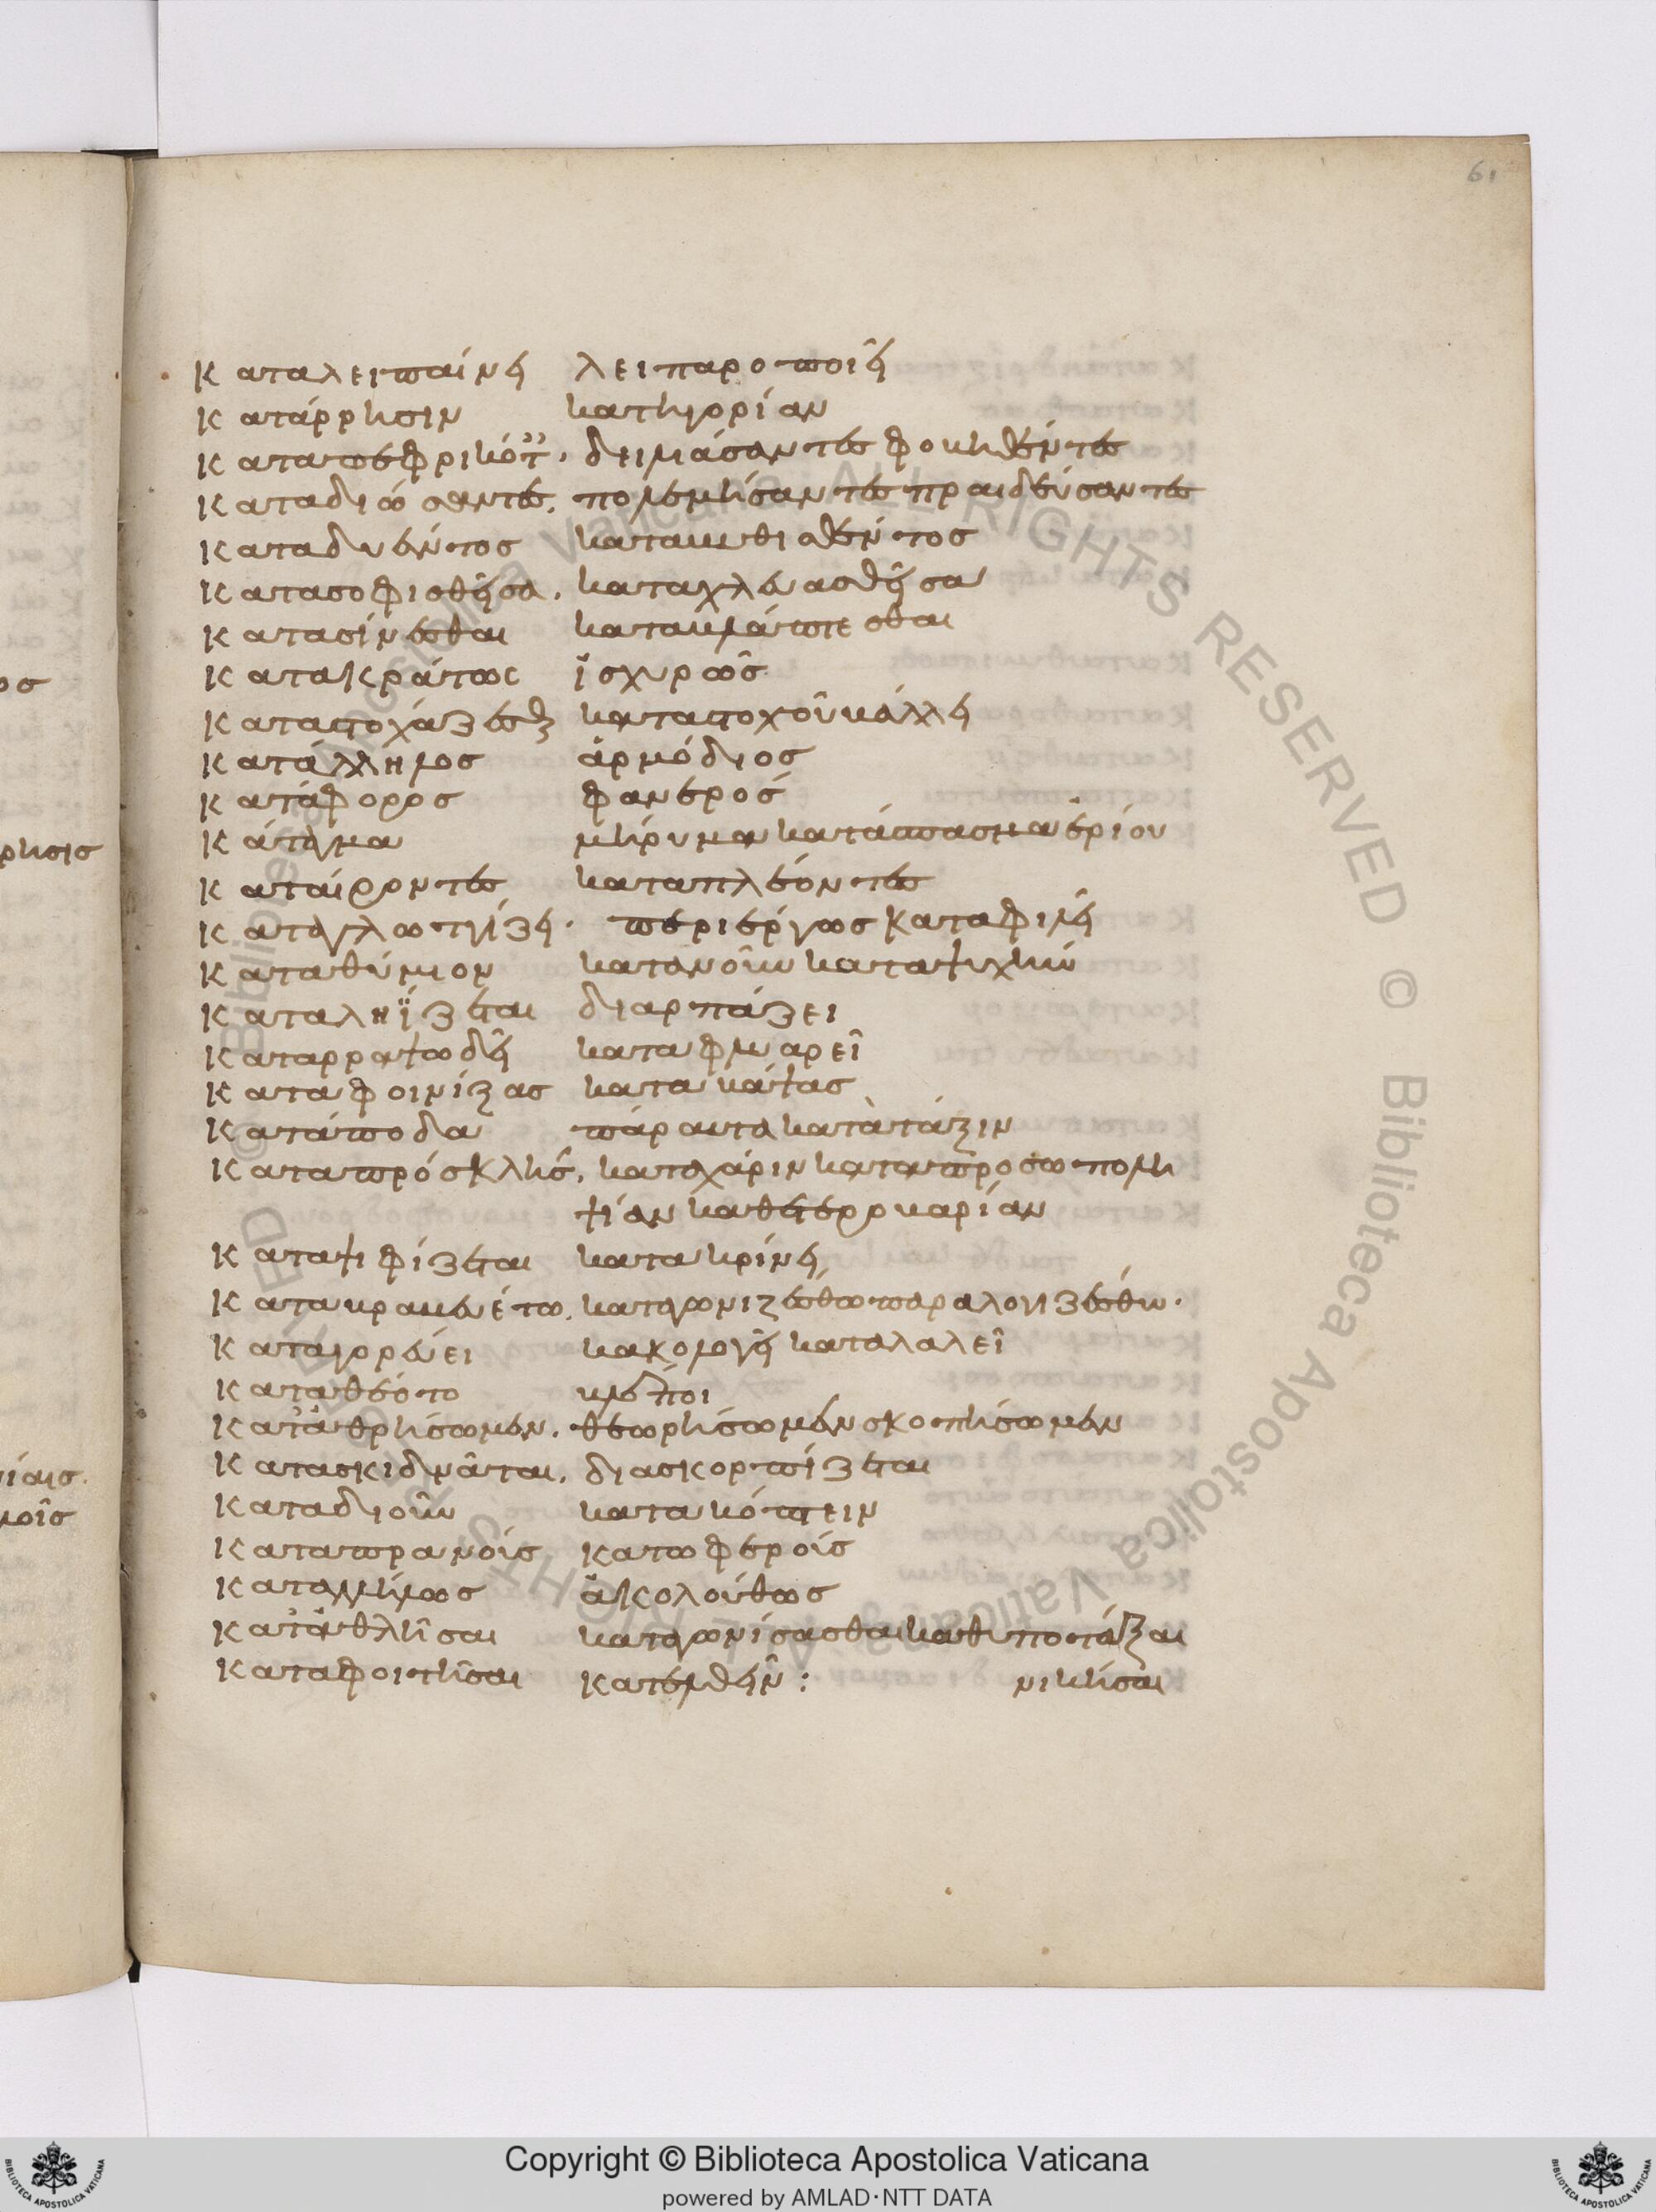 61
Καταλειπαίνει λειπαροποιεῖ
Κατάρρησιν κατηγορίαν
Καταπεφρικότ. δειμάσαντες φοβηθέντες
Καταδιώσαντες. πολεμήσαντες πραιδεύσαντες
Καταδυέντος καταβυθισθέντος
Κατασοφισθεῖσα. καταχλευασθεῖσα
Κατασίνεσθαι καταβλάπτεσθαι
Κατακράτως ἰσχυρῶς
Καταστοχάζεσθ καταστοχοῦ βάλλει
Κατάλληλος ἁρμόδιος
Κατάφορος φανερός
Κάταγμα μήρυμα κατάσπασμα ἐρίου
Καταίροντες καταπλέοντες
Καταγλωττίζει. περιέργως καταφιλεῖ
Καταθύμιον κατανοῦν καταψυχήν
Καταληΐζεται διαρπάζει
Καταρραψωδεῖ καταφλυαρεῖ
Καταφοινίξας καταβάψας
Κατάποδα πάραυτα κατὰ τάξιν
Καταπρόσκλησ. καταχάριν καταπροσωποληψίαν καθετερομαρίαν
Καταψηφίζεται κατακρίνει
Κατακραβευέτω. καταγωνιζέσθω παραλογιζέσθω.
Καταγορεύει κακολογεῖ καταλαλεῖ
Καταθέοιτο
Κατἀθρήσωμεν. θεωρήσωμεν σκοπήσωμεν
Κατασκιδνᾶται. διασκορπίζεται
Καταδιοῦν κατακόπτειν
Καταπρανοῖς κατωφεροῖς
Καταλλήλως ἀκολούθως
Κατἀθλῆσαι καταγωνίσασθαι καθυποτάξαι
Καταφοιτῆσαι κατελθεῖν : νικῆσαι
ος
ρησις
ίαις.
οῖς
Copyright © Biblioteca Apostolica Vaticana
powered by AMLAD·NTT DATA